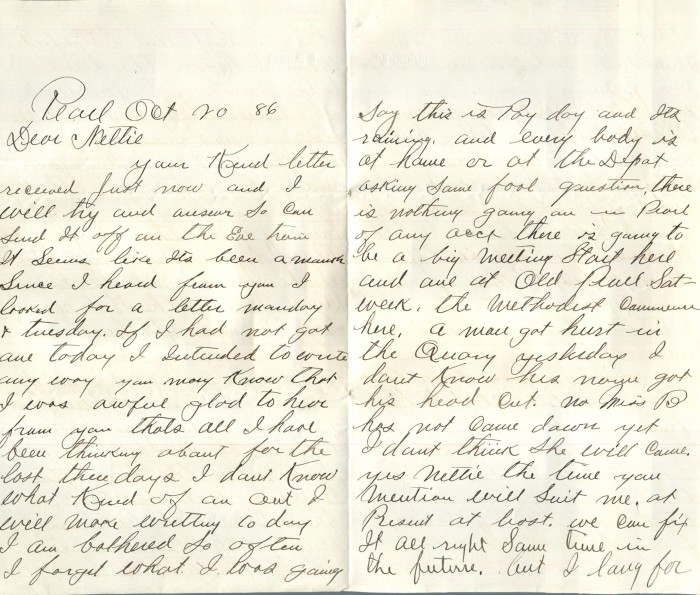 Pearl Oct 20 86
Dear Nellie
your Kind letter
received Just now and I
will try and answr So can
Send It off on the Eve train
It Seems like Its been a month
Since I heard from you I
looked for a letter monday
& tuesday. If I had not got
one today I Intended to write
any way you may Know that
I was awful glad to hear
from you thats all I have
been thinking about for the
last three days I dont Know
what Kind of an out I
will make writting to day
I am bothered So often
I forget what I was going
Say this is Pay day and Its
raining. and every body is
at home or at the Depot
asking Some fool question, there
is nothing going on in Pearl
of any acct there is going to
be a big meeting Start here
and one at Old Pearl Sat-
week. the Methodist Commence
here. a man got hurt in
the Quary yesterday I
dont Know his name got
his head cut. no Miss B
has not came down yet
I dont think She will come.
yes Nellie the time you
mention will Suit me. at
Present at least. we can fix
It all right Some time in
the future. but I long for